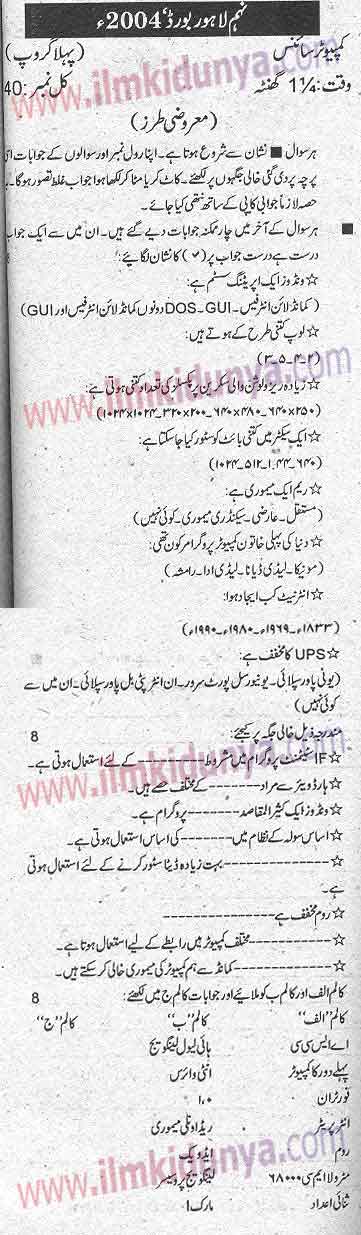 نہم لاہور بورڈ 2004ء
کمپیوٹر سائنس (پہلا گروپ)
وقت: 1¼ گھنٹہ کل نمبر: 40
(معروضی طرز)
■ ہر سوال ■ نشان سے شروع ہوتا ہے۔ اپنا رول نمبر اور سوالوں کے جوابات اسی
پرچہ پر دی گئی خالی جگہوں پر لکھئے۔ کاٹ کر یا مٹا کر لکھا ہوا جواب غلط تصور ہوگا۔
حصہ لازماً جوابی کاپی کے ساتھ نتھی کیا جائے۔
■ ہر سوال کے آخر میں چار ممکنہ جوابات دیے گئے ہیں۔ ان میں سے ایک جواب
درست ہے درست جواب پر (✓) کا نشان لگائیے:
☆ ونڈوز ایک اپریٹنگ سسٹم ہے:
(کمانڈ لائن انٹرفیس۔ DOS-GUI دونوں کمانڈ لائن انٹرفیس اور GUI)
☆ لوپ کتنی طرح کے ہوتے ہیں:
(۲۔۴۔۵۔۳)
☆ زیادہ ریزولوشن والی سکرین پر پکسلز کی تعداد کتنی ہوتی ہے:
(۲۵۰×۶۴۰۔۴۸۰×۶۴۰۔۲۰۰×۳۲۰۔۱۰۲۴×۱۰۲۴)
☆ ایک سیکٹر میں کتنی بائٹ کو سٹور کیا جا سکتا ہے:
(۶۴۰۔۱.۴۴۔۵۱۲۔۱۰۲۴)
☆ ریم ایک میموری ہے:
(مستقل۔ عارضی۔ سیکنڈری میموری۔ کوئی نہیں)
☆ دنیا کی پہلی خاتون کمپیوٹر پروگرامر کون تھی:
(مونیکا۔ لیڈی ڈیانا۔ لیڈی ادا۔ رامشہ)
☆ انٹرنیٹ کب ایجاد ہوا:
(۱۸۳۳ء۔ ۱۹۶۹ء۔ ۱۹۸۰ء۔ ۱۹۹۰ء)
☆ UPS کا مخفف ہے:
(یونی پاور سپلائی۔ یونیورسل پورٹ سرور۔ ان انٹرپٹی بل پاور سپلائی۔ ان میں سے
کوئی نہیں)
مندرجہ ذیل خالی جگہ پر کیجئے: 8
☆ IF سٹیٹمنٹ پروگرام میں مشروط ---------- کے لئے استعمال ہوتی ہے۔
☆ ہارڈویئر سے مراد ---------- کے مختلف حصے ہیں۔
☆ ونڈوز ایک کثیر المقاصد ---------- پروگرام ہے۔
☆ اساس سولہ کے نظام میں ---------- کی اساس استعمال ہوتی ہے۔
☆ ---------- بہت زیادہ ڈیٹا سٹور کرنے کے لئے استعمال ہوتی
ہے۔
☆ روم مخفف ہے ----------
☆ ---------- مختلف کمپیوٹر میں رابطے کے لیے استعمال ہوتا ہے۔
☆ ---------- کمانڈ سے ہم کمپیوٹر کی میموری خالی کر سکتے ہیں۔
کالم الف اور کالم ب کو ملائیے اور جوابات کالم ج میں لکھئے: 8
کالم "الف" کالم "ب" کالم "ج"
اے ایس سی سی ہائی لیول لینگویج
پہلے دور کا کمپیوٹر انٹی وائرس
فورٹران ۱،۰
انٹرپریٹر ریڈ اونلی میموری
روم ایڈویک
موٹرولا ایم سی ۶۸۰۰۰ لینگویج پروسیسر
ثنائی اعداد مارک I
www.ilmkidunya.com
www.ilmkidunya.com
www.ilmkidunya.com
www.ilmkidunya.com